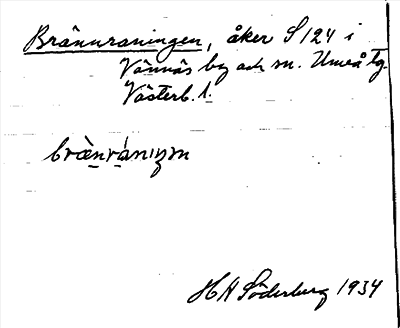 Brännraningen, åker S 124 i
Vännäs by och sn. Umeå tg.
Västerb. l.
brä̀nrániŋən
H A Söderberg 1934